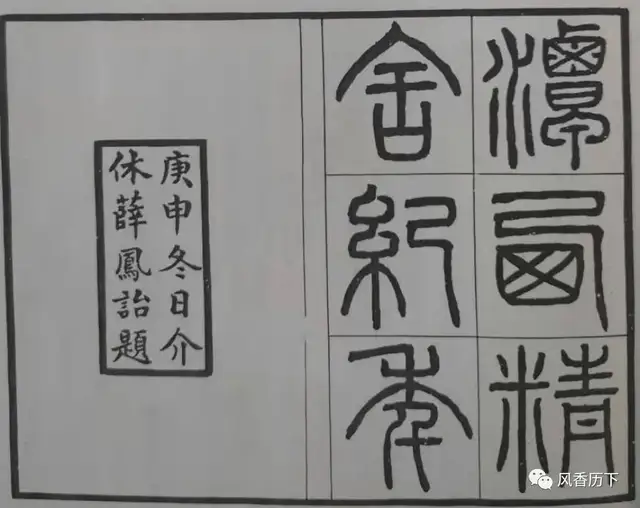 潭西精
舍紀年
庚申冬日介
休薛鳳詒題
风香历下